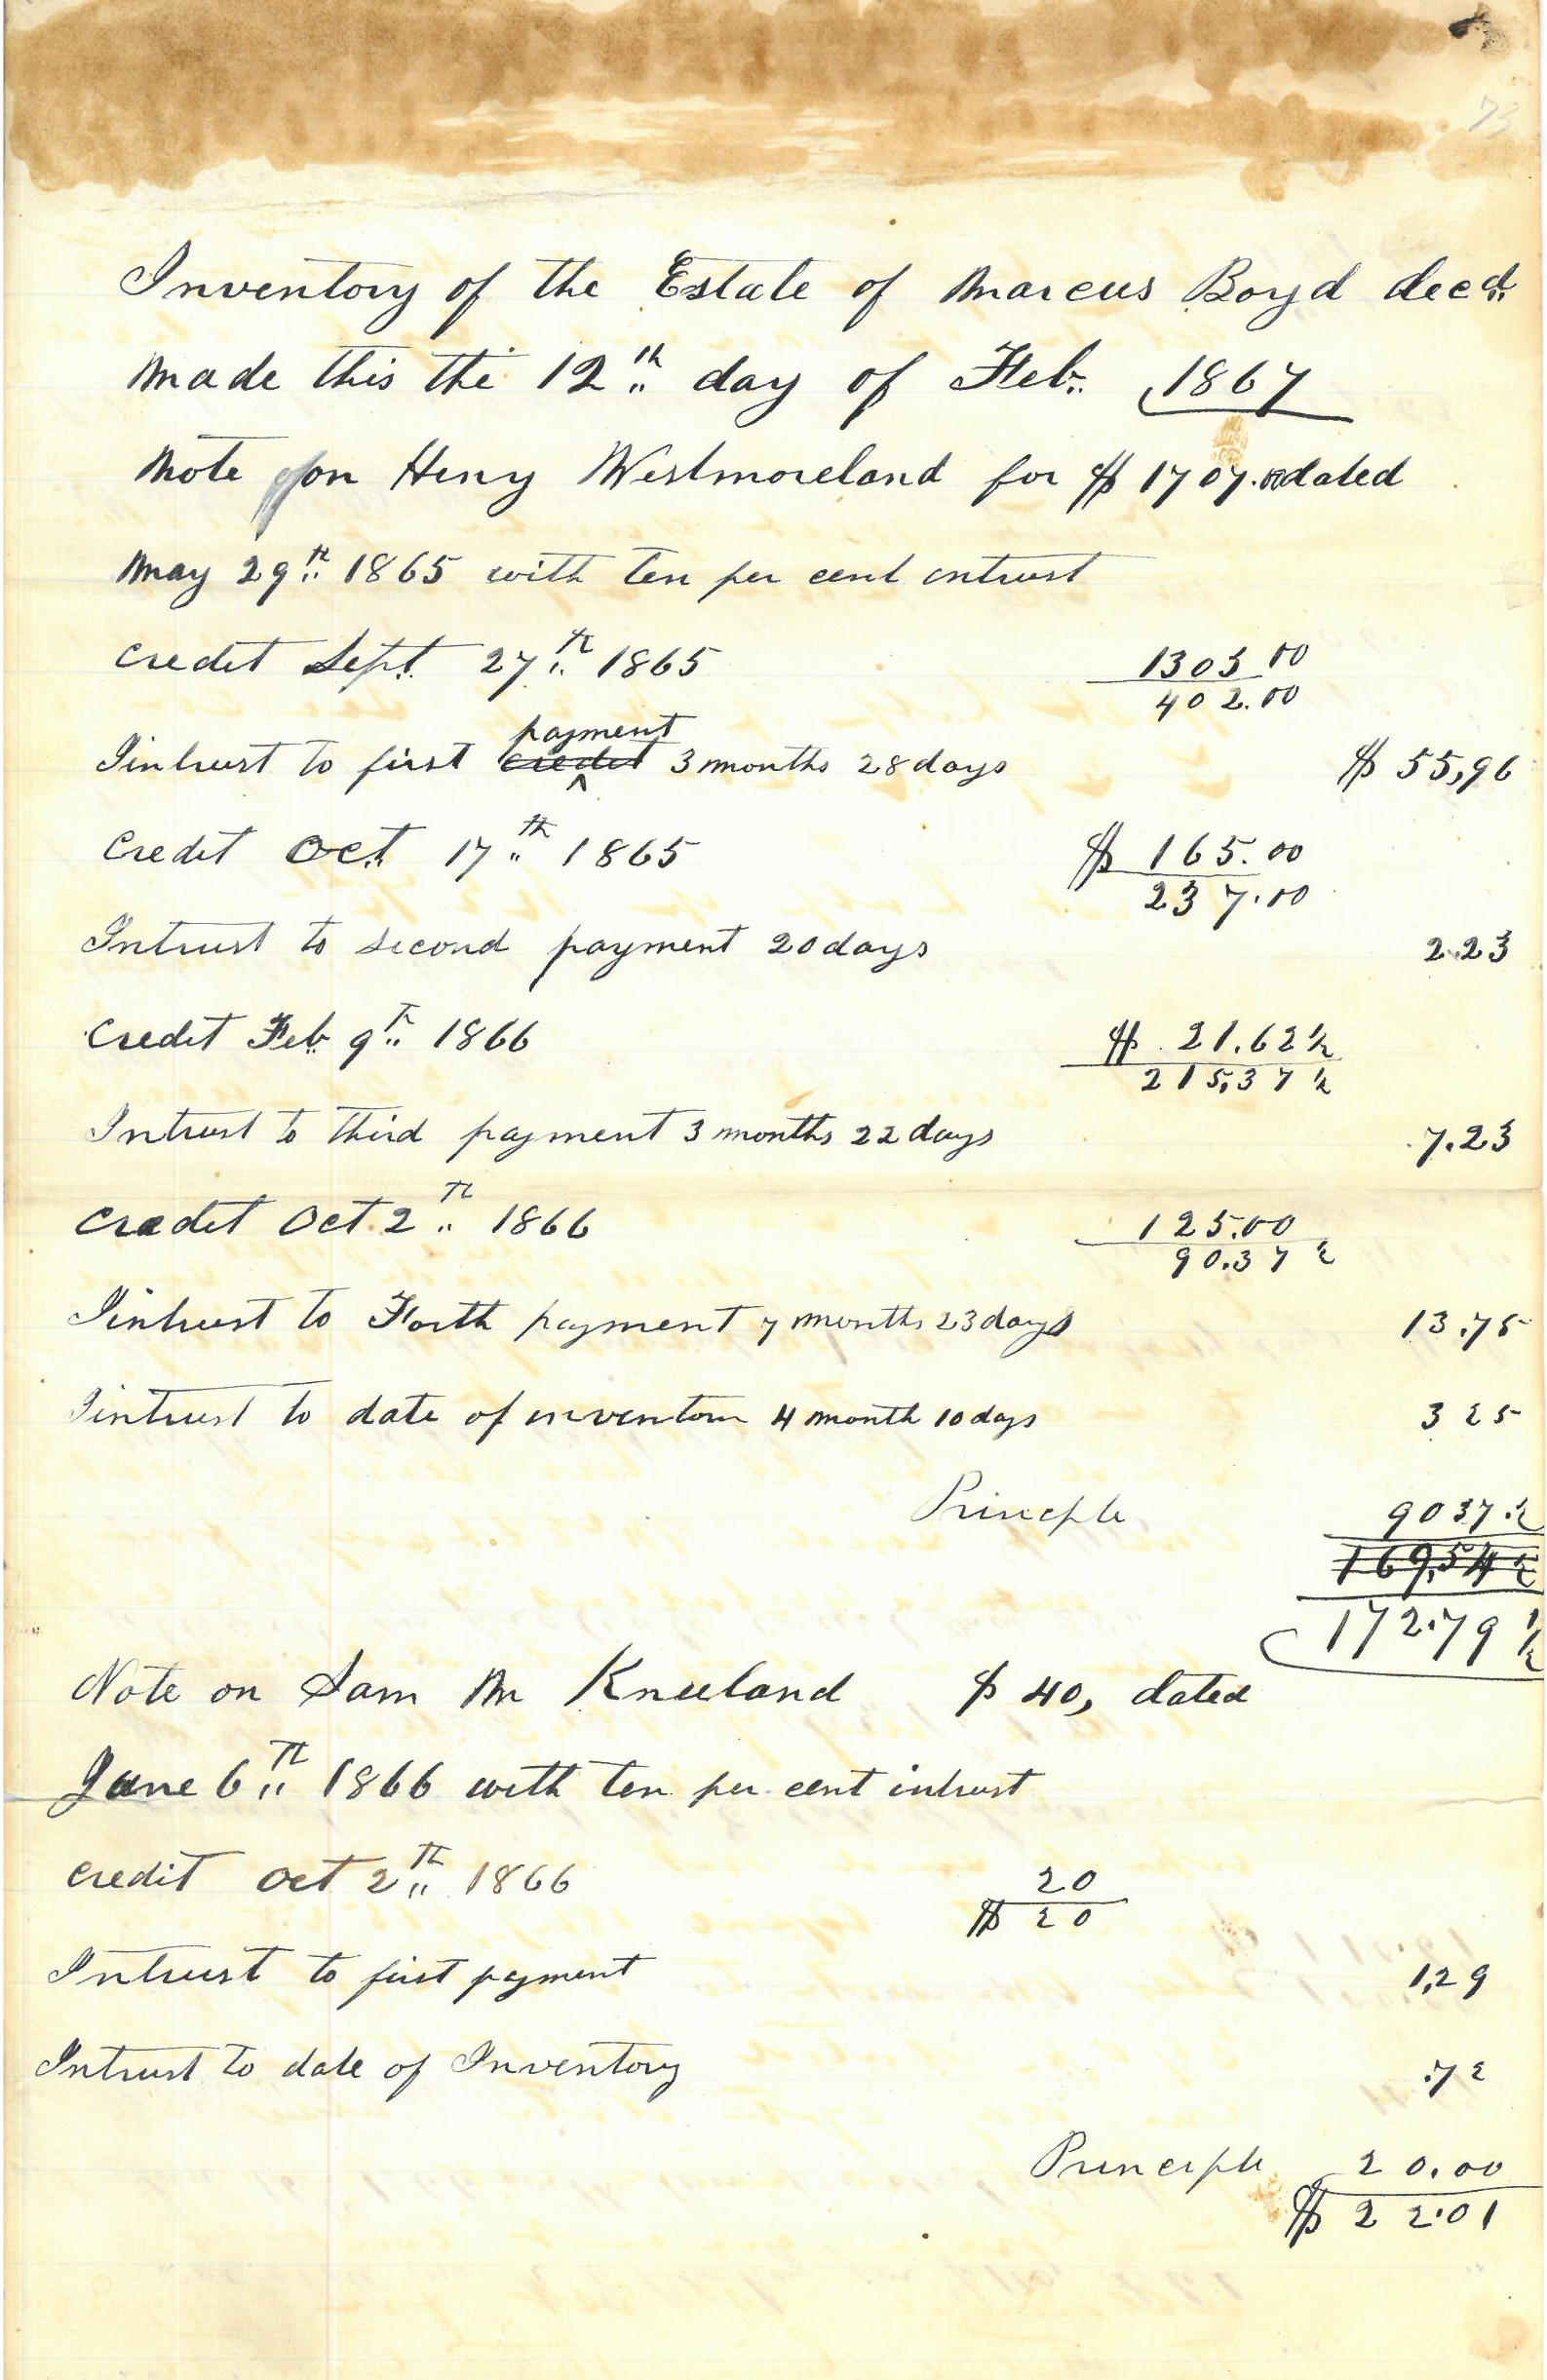 73
Inventory of the Estate of Marcus Boyd decd.
Made this the 12th day of Feb. 1867
Note on Henry Westmoreland for $ 1707.00 dated
May 29th 1865 with ten per cent intrust
Credit Sept. 27th 1865 1305 00
402.00
Iintrust to first credit payment 3 months 28 days $ 55,96
Credit Oct. 17th 1865 $ 165.00
237.00
Intrust to second payment 20 days 2.23
Credit Feb 9th 1866 $ 21.62 1/2
215,37 1/2
Intrust to third payment 3 months 22 days 7.23
Credit Oct. 2th 1866 125.00
90.37 1/2
Iintrust to Forth payment 7 months 23 days 13.75
Iintrust to date of inventory 4 month 10 days 3 25
Principle 9037.1/2
169,54 1/2
172.79 1/2
Note on Sam M Kneeland $ 40, dated
June 6th 1866 with ten per cent intrust
Credit Oct 2th 1866 20
$ 20
Intrust to first payment 1,29
Intrust to date of Inventory .72
Principle 20.00
$ 22.01